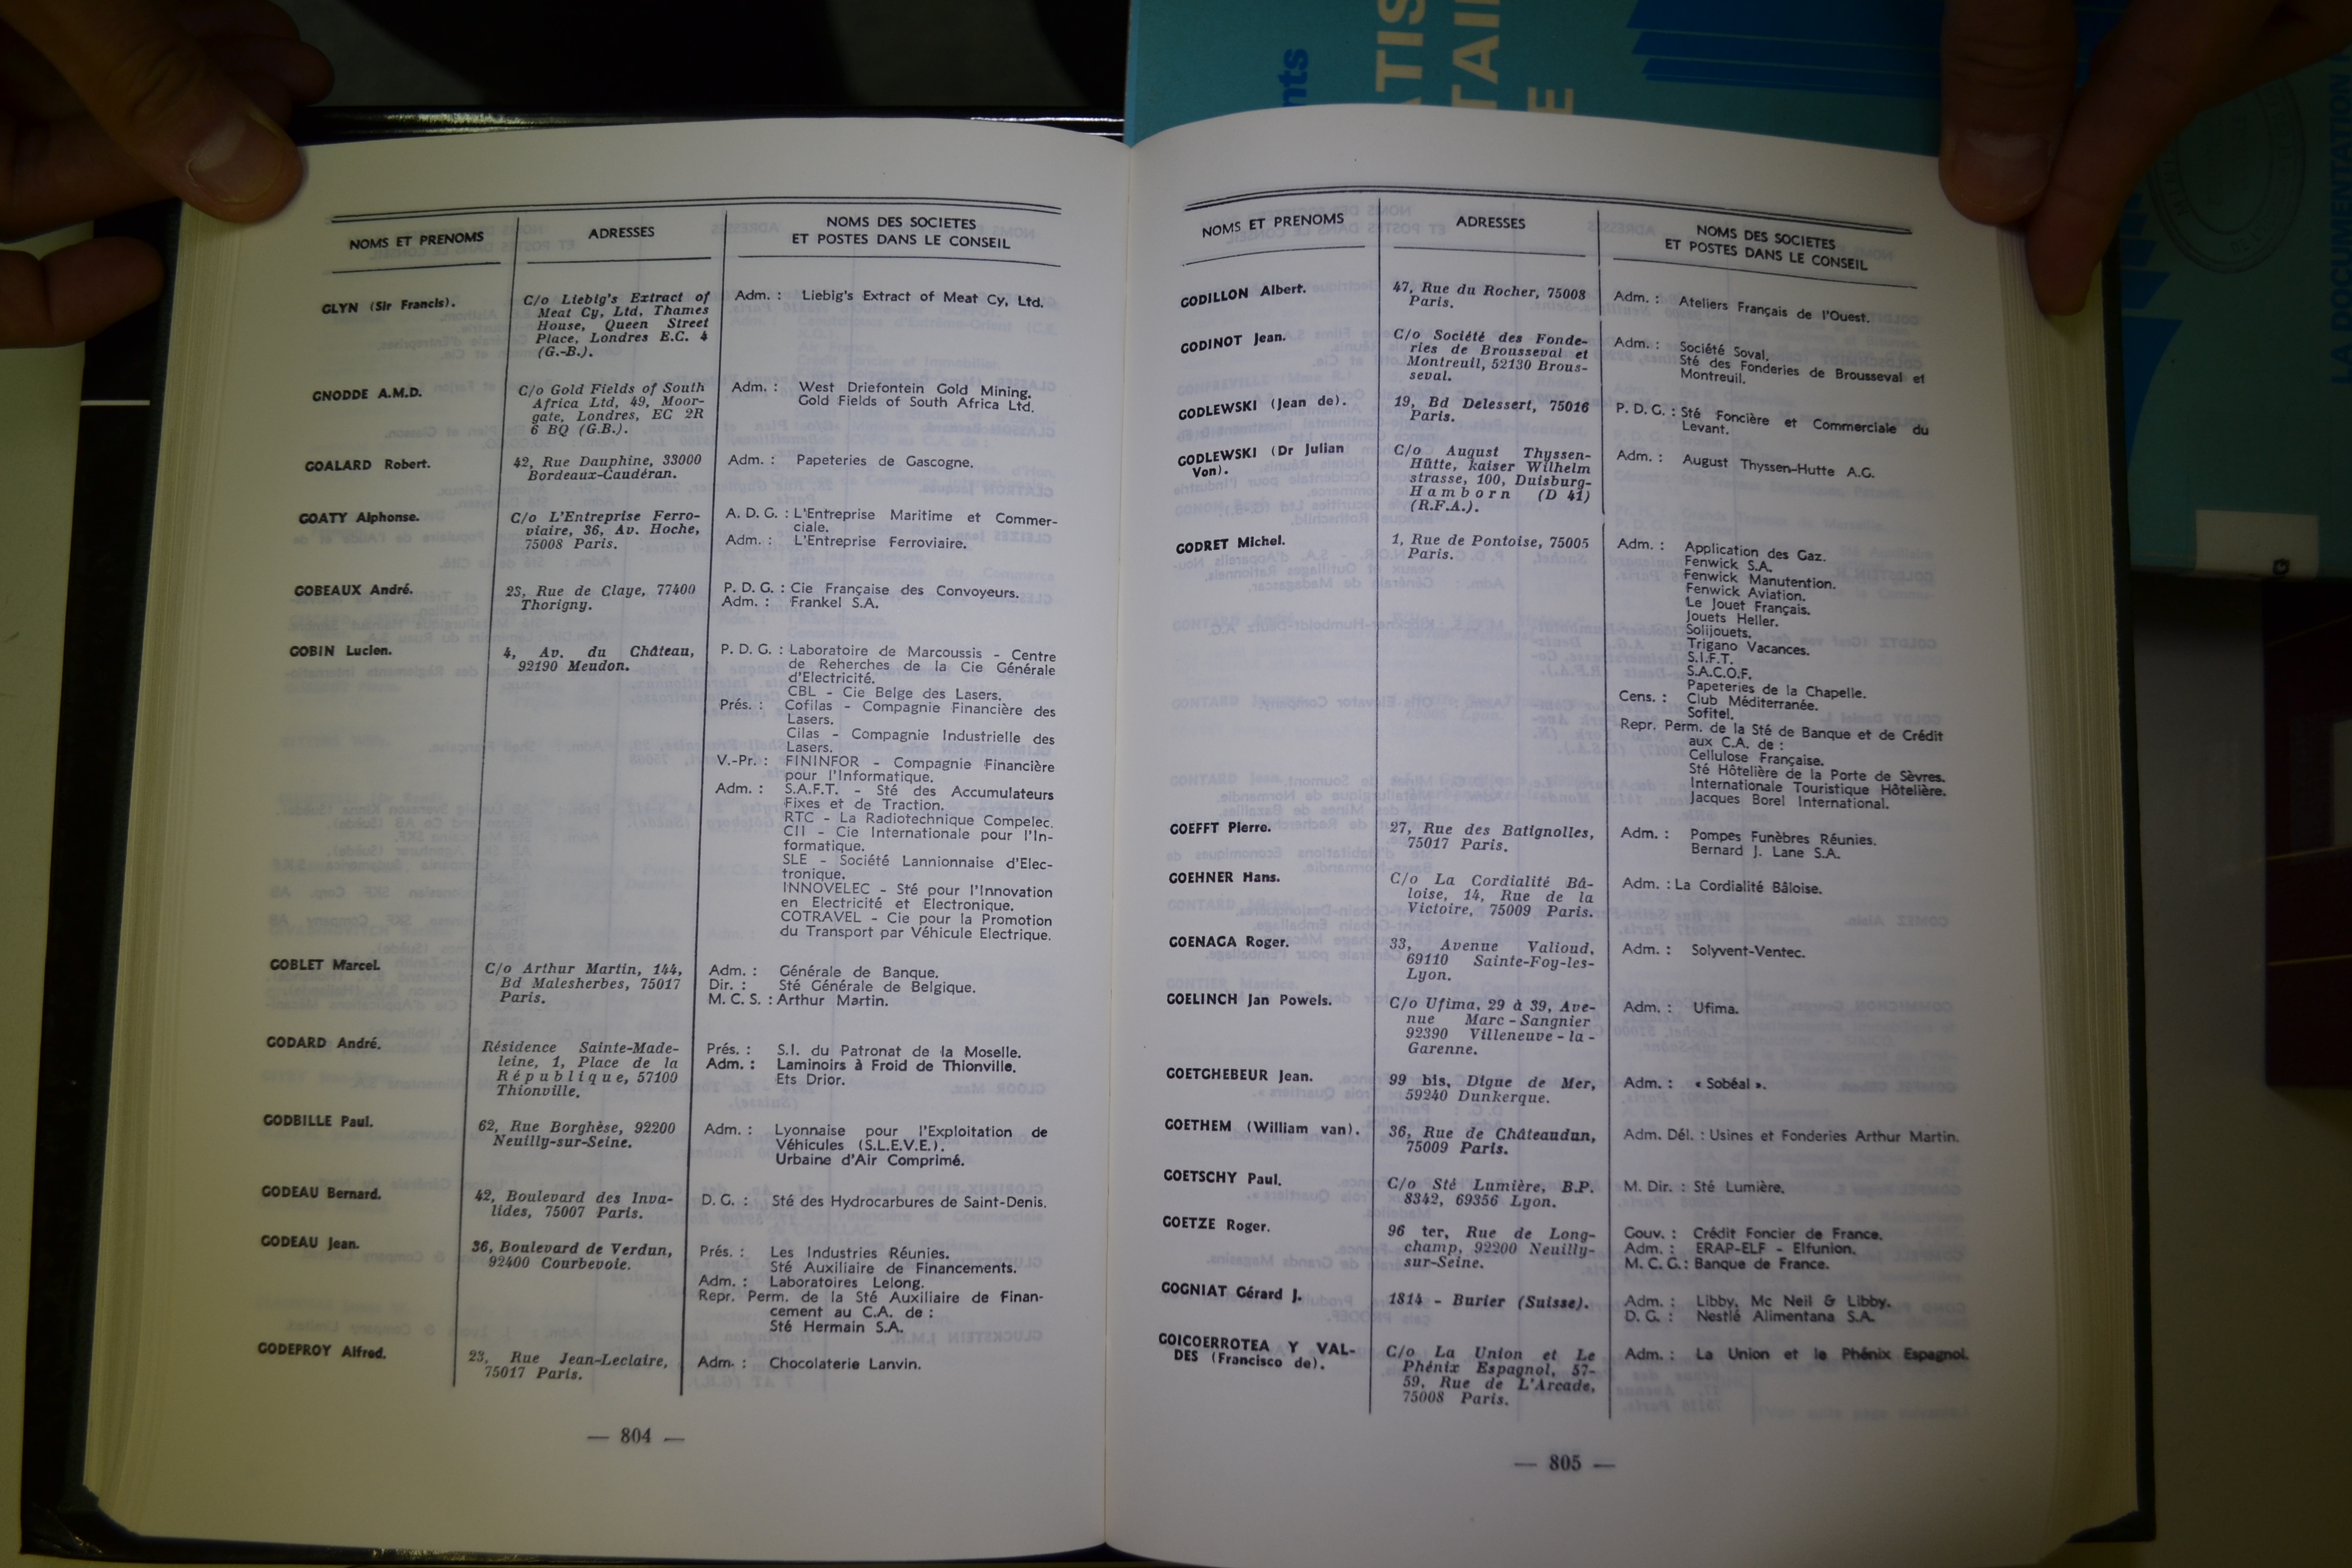 NOMS ET PRENOMS
ADRESSES
NOMS DES SOCIETES
ET POSTES DANS LE CONSEIL
GLYN (Sir Francis).
C/o Liebig's Extract of
Meat Cy, Ltd, Thames
House, Queen Street
Place, Londres E.C. 4
(G.-B.).
Adm. : Liebig's Extract of Meat Cy, Ltd.
GNODDE A.M.D.
C/o Gold Fields of South
Africa Ltd, 49, Moor-
gate, Londres, EC 2R
6 BQ (G.B.).
Adm. : West Driefontein Gold Mining.
Gold Fields of South Africa Ltd.
GOALARD Robert.
42, Rue Dauphine, 33000
Bordeaux-Caudéran.
Adm. : Papeteries de Gascogne.
GOATY Alphonse.
C/o L'Entreprise Ferro-
viaire, 36, Av. Hoche,
75008 Paris.
A. D. G. : L'Entreprise Maritime et Commer-
ciale.
Adm. : L'Entreprise Ferroviaire.
GOBEAUX André.
23, Rue de Claye, 77400
Thorigny.
P. D. G. : Cie Française des Convoyeurs.
Adm. : Frankel S.A.
GOBIN Lucien.
4, Av. du Château,
92190 Meudon.
P. D. G. : Laboratoire de Marcoussis - Centre
de Reherches de la Cie Générale
d'Electricité.
CBL - Cie Belge des Lasers.
Prés. : Cofilas - Compagnie Financière des
Lasers.
Cilas - Compagnie Industrielle des
Lasers.
V.-Pr. : FININFOR - Compagnie Financière
pour l'Informatique.
Adm. : S.A.F.T. - Sté des Accumulateurs
Fixes et de Traction.
RTC - La Radiotechnique Compelec.
CII - Cie Internationale pour l'In-
formatique.
SLE - Société Lannionnaise d'Elec-
tronique.
INNOVELEC - Sté pour l'Innovation
en Electricité et Electronique.
COTRAVEL - Cie pour la Promotion
du Transport par Véhicule Electrique.
GOBLET Marcel.
C/o Arthur Martin, 144,
Bd Malesherbes, 75017
Paris.
Adm. : Générale de Banque.
Dir. : Sté Générale de Belgique.
M. C. S. : Arthur Martin.
GODARD André.
Résidence Sainte-Made-
leine, 1, Place de la
République, 57100
Thionville.
Prés. : S.I. du Patronat de la Moselle.
Adm. : Laminoirs à Froid de Thionville.
Ets Drior.
GODBILLE Paul.
62, Rue Borghèse, 92200
Neuilly-sur-Seine.
Adm. : Lyonnaise pour l'Exploitation de
Véhicules (S.L.E.V.E.).
Urbaine d'Air Comprimé.
GODEAU Bernard.
42, Boulevard des Inva-
lides, 75007 Paris.
D. G. : Sté des Hydrocarbures de Saint-Denis.
GODEAU Jean.
36, Boulevard de Verdun,
92400 Courbevoie.
Prés. : Les Industries Réunies.
Sté Auxiliaire de Financements.
Adm. : Laboratoires Lelong.
Repr. Perm. de la Sté Auxiliaire de Finan-
cement au C.A. de :
Sté Hermain S.A.
GODEFROY Alfred.
23, Rue Jean-Leclaire,
75017 Paris.
Adm. : Chocolaterie Lanvin.
— 804 —
NOMS ET PRENOMS
ADRESSES
NOMS DES SOCIETES
ET POSTES DANS LE CONSEIL
GODILLON Albert.
47, Rue du Rocher, 75008
Paris.
Adm. : Ateliers Français de l'Ouest.
GODINOT Jean.
C/o Société des Fonde-
ries de Brousseval et
Montreuil, 52130 Brous-
seval.
Adm. : Société Soval.
Sté des Fonderies de Brousseval et
Montreuil.
GODLEWSKI (Jean de).
19, Bd Delessert, 75016
Paris.
P. D. G. : Sté Foncière et Commerciale du
Levant.
GODLEWSKI (Dr Julian
Von).
C/o August Thyssen-
Hütte, kaiser Wilhelm
strasse, 100, Duisburg-
Hamborn (D 41)
(R.F.A.).
Adm. : August Thyssen-Hutte A.G.
GODRET Michel.
1, Rue de Pontoise, 75005
Paris.
Adm. : Application des Gaz.
Fenwick S.A.
Fenwick Manutention.
Fenwick Aviation.
Le Jouet Français.
Jouets Heller.
Solijouets.
Trigano Vacances.
S.I.F.T.
S.A.C.O.F.
Papeteries de la Chapelle.
Cens. : Club Méditerranée.
Sofitel.
Repr. Perm. de la Sté de Banque et de Crédit
aux C.A. de :
Cellulose Française.
Sté Hôtelière de la Porte de Sèvres.
Internationale Touristique Hôtelière.
Jacques Borel International.
GOEFFT Pierre.
27, Rue des Batignolles,
75017 Paris.
Adm. : Pompes Funèbres Réunies.
Bernard J. Lane S.A.
GOEHNER Hans.
C/o La Cordialité Bâ-
loise, 14, Rue de la
Victoire, 75009 Paris.
Adm. : La Cordialité Bâloise.
GOENAGA Roger.
33, Avenue Valioud,
69110 Sainte-Foy-les-
Lyon.
Adm. : Solyvent-Ventec.
GOELINCH Jan Powels.
C/o Ufima, 29 à 39, Ave-
nue Marc-Sangnier
92390 Villeneuve-la-
Garenne.
Adm. : Ufima.
GOETGHEBEUR Jean.
99 bis, Digue de Mer,
59240 Dunkerque.
Adm. : « Sobéal ».
GOETHEM (William van).
36, Rue de Châteaudun,
75009 Paris.
Adm. Dél. : Usines et Fonderies Arthur Martin.
GOETSCHY Paul.
C/o Sté Lumière, B.P.
8342, 69356 Lyon.
M. Dir. : Sté Lumière.
GOETZE Roger.
96 ter, Rue de Long-
champ, 92200 Neuilly-
sur-Seine.
Gouv. : Crédit Foncier de France.
Adm. : ERAP-ELF - Elfunion.
M. C. G. : Banque de France.
GOGNIAT Gérard J.
1814 - Burier (Suisse).
Adm. : Libby, Mc Neil & Libby.
D. G. : Nestlé Alimentana S.A.
GOICOERROTEA Y VAL-
DES (Francisco de).
C/o La Union et Le
Phénix Espagnol, 57-
59, Rue de L'Arcade,
75008 Paris.
Adm. : La Union et le Phénix Espagnol.
— 805 —
nts
ATIS
TAI
E
LA DOCUMENTATION
G